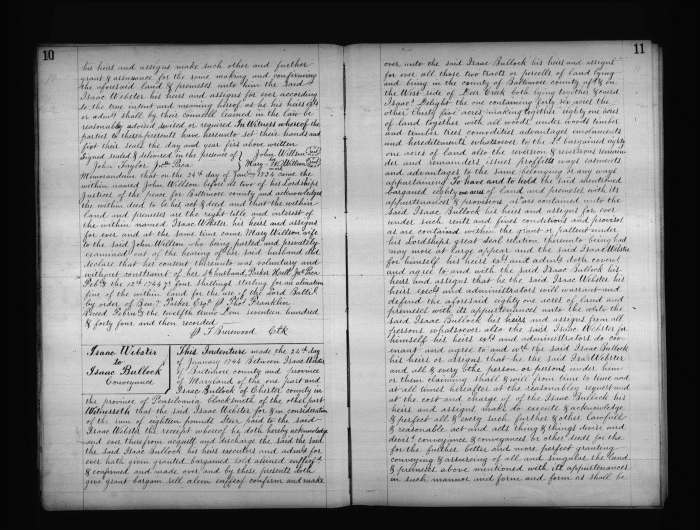 10
his heirs and assigns make such other and further
grant & assurance for the same making and confirming
the aforesaid land & premises unto him the said
Isaac Webster his heirs and assigns for ever according
to the true intent and meaning hereof as he his heirs
or adm shall by their counsell learned in the law be
reasonably advised devised or required In Witness whereof the
parties to these presents have hereunto set their hands and
fixt their seals the day and year first above written
Signed sealed & delivered in the presence of John Willson Seal
John Taylor Jno Paca Mary W Willson Seal
Memorandum that on the 24th day of Janry 1744 came the
within named John Willson before us two of his Lordships
Justices of the peace for Baltimore County and acknowledged
the within deed to be his act & deed and that the within
land and premises are the right title and interest of
the within named Isaac Webster his heirs and assigns
for ever and at the same time came Mary Willson wife
to the said John Willson who being parted and privately
examined out of the hearing of her said husband did
declare that her consent thereunto was voluntary and
without constraint of her sd husband Parker Hall Jno Paca
the 12th 1744 four shillings sterling for an alienation
fine of the within land for the use of the Lord
by order of Parker Esqr Franklin
Recd the twelfth Seventeen hundred
& forty four and then recorded
T Brerewood Clk
Isaac Webster
to
Isaac Bullock
Conveyance
This Indenture made the 24th day
of January 1744 Between Isaac Webster
of Baltimore county and province
of Maryland of the one part and
Isaac Bullock of Chester county in
the province of Pensilvania blacksmith of the other part
Witnesseth that the said Isaac Webster for & in consideration
of the sum of eighteen pounds Ster paid to the said
Isaac Webster the receipt whereof he doth hereby acknowledge
and ever therefrom acquitt and discharge the said the said
the said Isaac Bullock his heirs executors and adms for
ever hath given granted bargained sold aliened
& confirmed and made over and by these presents doth
give grant bargain sell alien enfeof confirm and make
11
over unto the said Isaac Bullock his heirs and assigns
for ever all those two tracts or parcells of land lying
and being in the county of Baltimore county & on
the West side of Deer Creek both lying together &
Isaacs Delight the one containing forty six acres the
other thirty five acres making together eighty one acres
of land together with all woods under woods timber
and timber trees comodities advantages emoluments
and hereditements whatsoever to the sd bargained eighty
one acres of land also the revertion & revertions remainder
and remainders issues proffitts ways easments
and advantages to the same belonging or any ways
appertaining To have and to hold the said abovementioned
bargained eighty one acres of land and premises with its
appurtenances & provisoes as are contained unto the
said Isaac Bullock his heirs and assigns for ever
under such rents and fines conditions and provisoes
as are contained within the grant or pattent under
his Lordships great Seal relation thereunto being had
may more at large appear and the said Isaac Webster
for himself his heirs exrs and adms doth covenant
and agree to and with the said Isaac Bullock his
heirs and assigns that he the said Isaac Webster his
heirs execrs and administrators will warrant and
defend the aforesaid eighty one acres of land and
premises with its appurtenances unto the
said Isaac Bullock his heirs and assigns from all
persons whatsoever also the said Isaac Webster for
himself his heirs exrs and administrators do
and agree to and with the said Isaac Bullock
his heirs or assigns that he the said Isaac Webster
and all & every other person or persons under him
or them claiming shall & will from time to time and
at all times hereafter at the reasonable request and
at the cost and charge of the Isaac Bullock his
heirs and assigns make do execute & acknowledge
& perfect all & every such further & other lawfull
& reasonable act and acts thing & things devise and
devises conveyance & conveyances or other deeds for the
for the further better and more perfect granting
conveying & assureing of all and singular the land
& premises above mentioned with its appurtenances
in such manner and form and form as shall be